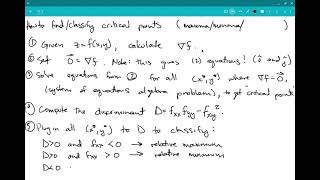 How to find/classify critical points (maxima/minima/
① Given z=f(x,y), calculate ∇f.
② Set 0⃗ = ∇f. Note: this gives (2) equations! (î and ĵ)
③ Solve equations from ② for all (x*,y*) where ∇f=0⃗,
(system of equations algebra problem), to get critical points
④ Compute the discriminant D=fxxfyy-fxy².
⑤ Plug in all (x*,y*) to D to classify:
D>0 and fxx<0 → relative maximum
D>0 and fxx>0 → relative minimum
D<0